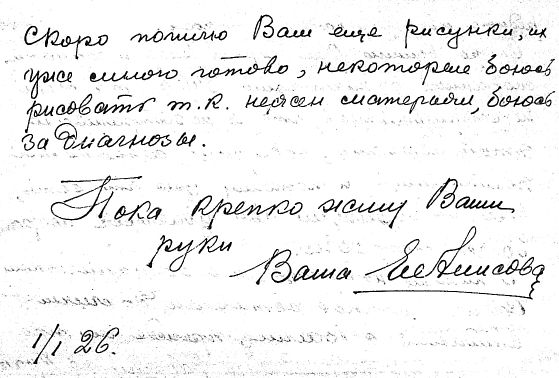 Скоро пошлю Вам еще рисунки, их
уже много готово, некоторые боюсь
рисовать т.к. неясен материал, боюсь
за диагнозы.
Пока крепко жму Ваши
руки
Ваша
1/I 26.